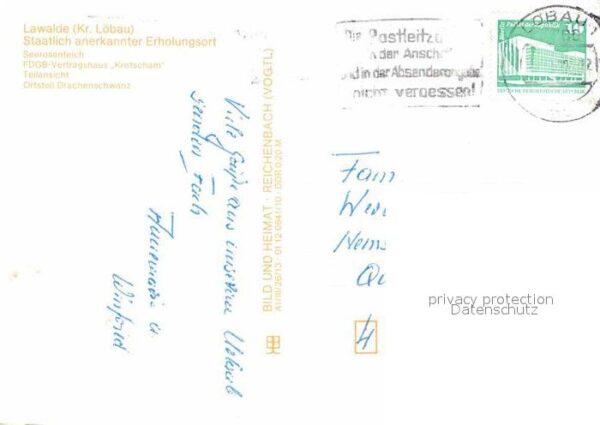 Lawalde (Kr. Löbau)
Staatlich anerkannter Erholungsort
Seerosenteich
FDGB-Vertragshaus „Kretscham“
Teilansicht
Ortsteil Drachenschwanz
Die Postleitza
in der Anschr
und in der Absenderangabe
nicht vergessen!
LÖBAU 1
BILD UND HEIMAT · REICHENBACH (VOGTL)
Viele Grüße aus unserem Urlaub
senden Euch
Annemarie u.
Winfried
Fam
privacy protection
Datenschutz